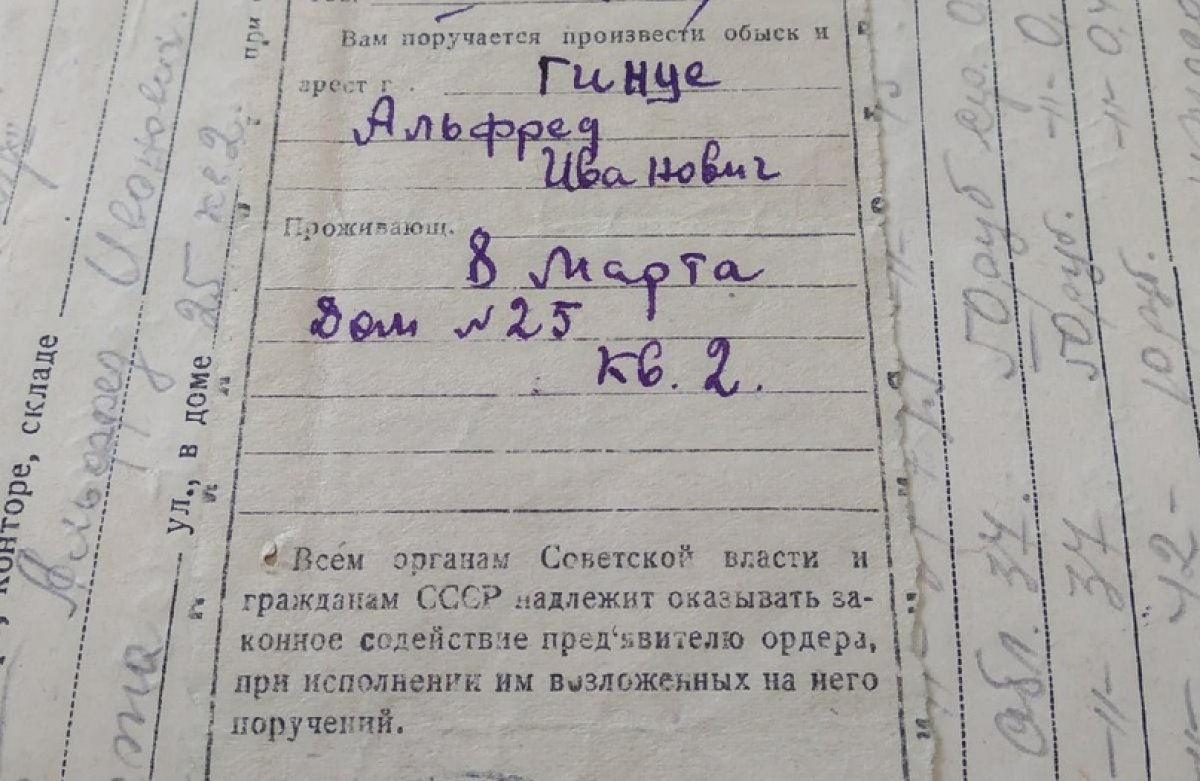 Вам поручается произвести обыск и
арест г. Гинце
Альфред
Иванович
Проживающ.
8 Марта
Дом №25
кв. 2.
Всем органам Советской власти и
гражданам СССР надлежит оказывать за-
конное содействие пред‘явителю ордера,
при исполнении им возложенных на него
поручений.
конторе, складе
Альфред Иванович.
ул., в доме 25 кв 2.
при
Обл. 37. 50 руб
-"- 37 50 руб.
42- 10 руб.